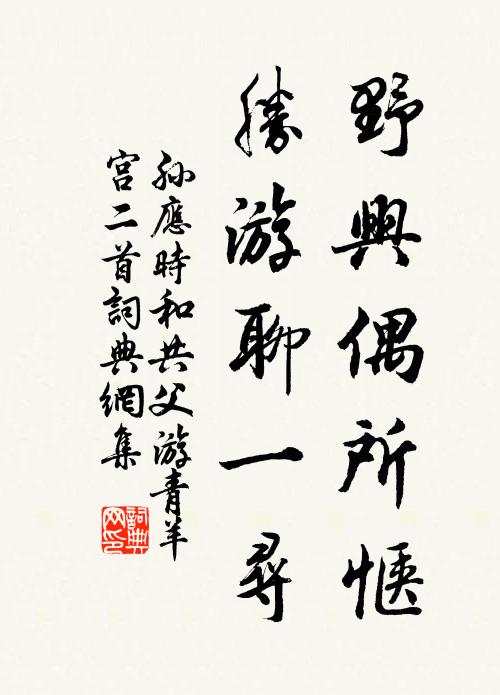 野興偶所愜
勝游聊一尋
孫應時和共父游青羊
宮二首詞典網集
詞典网印